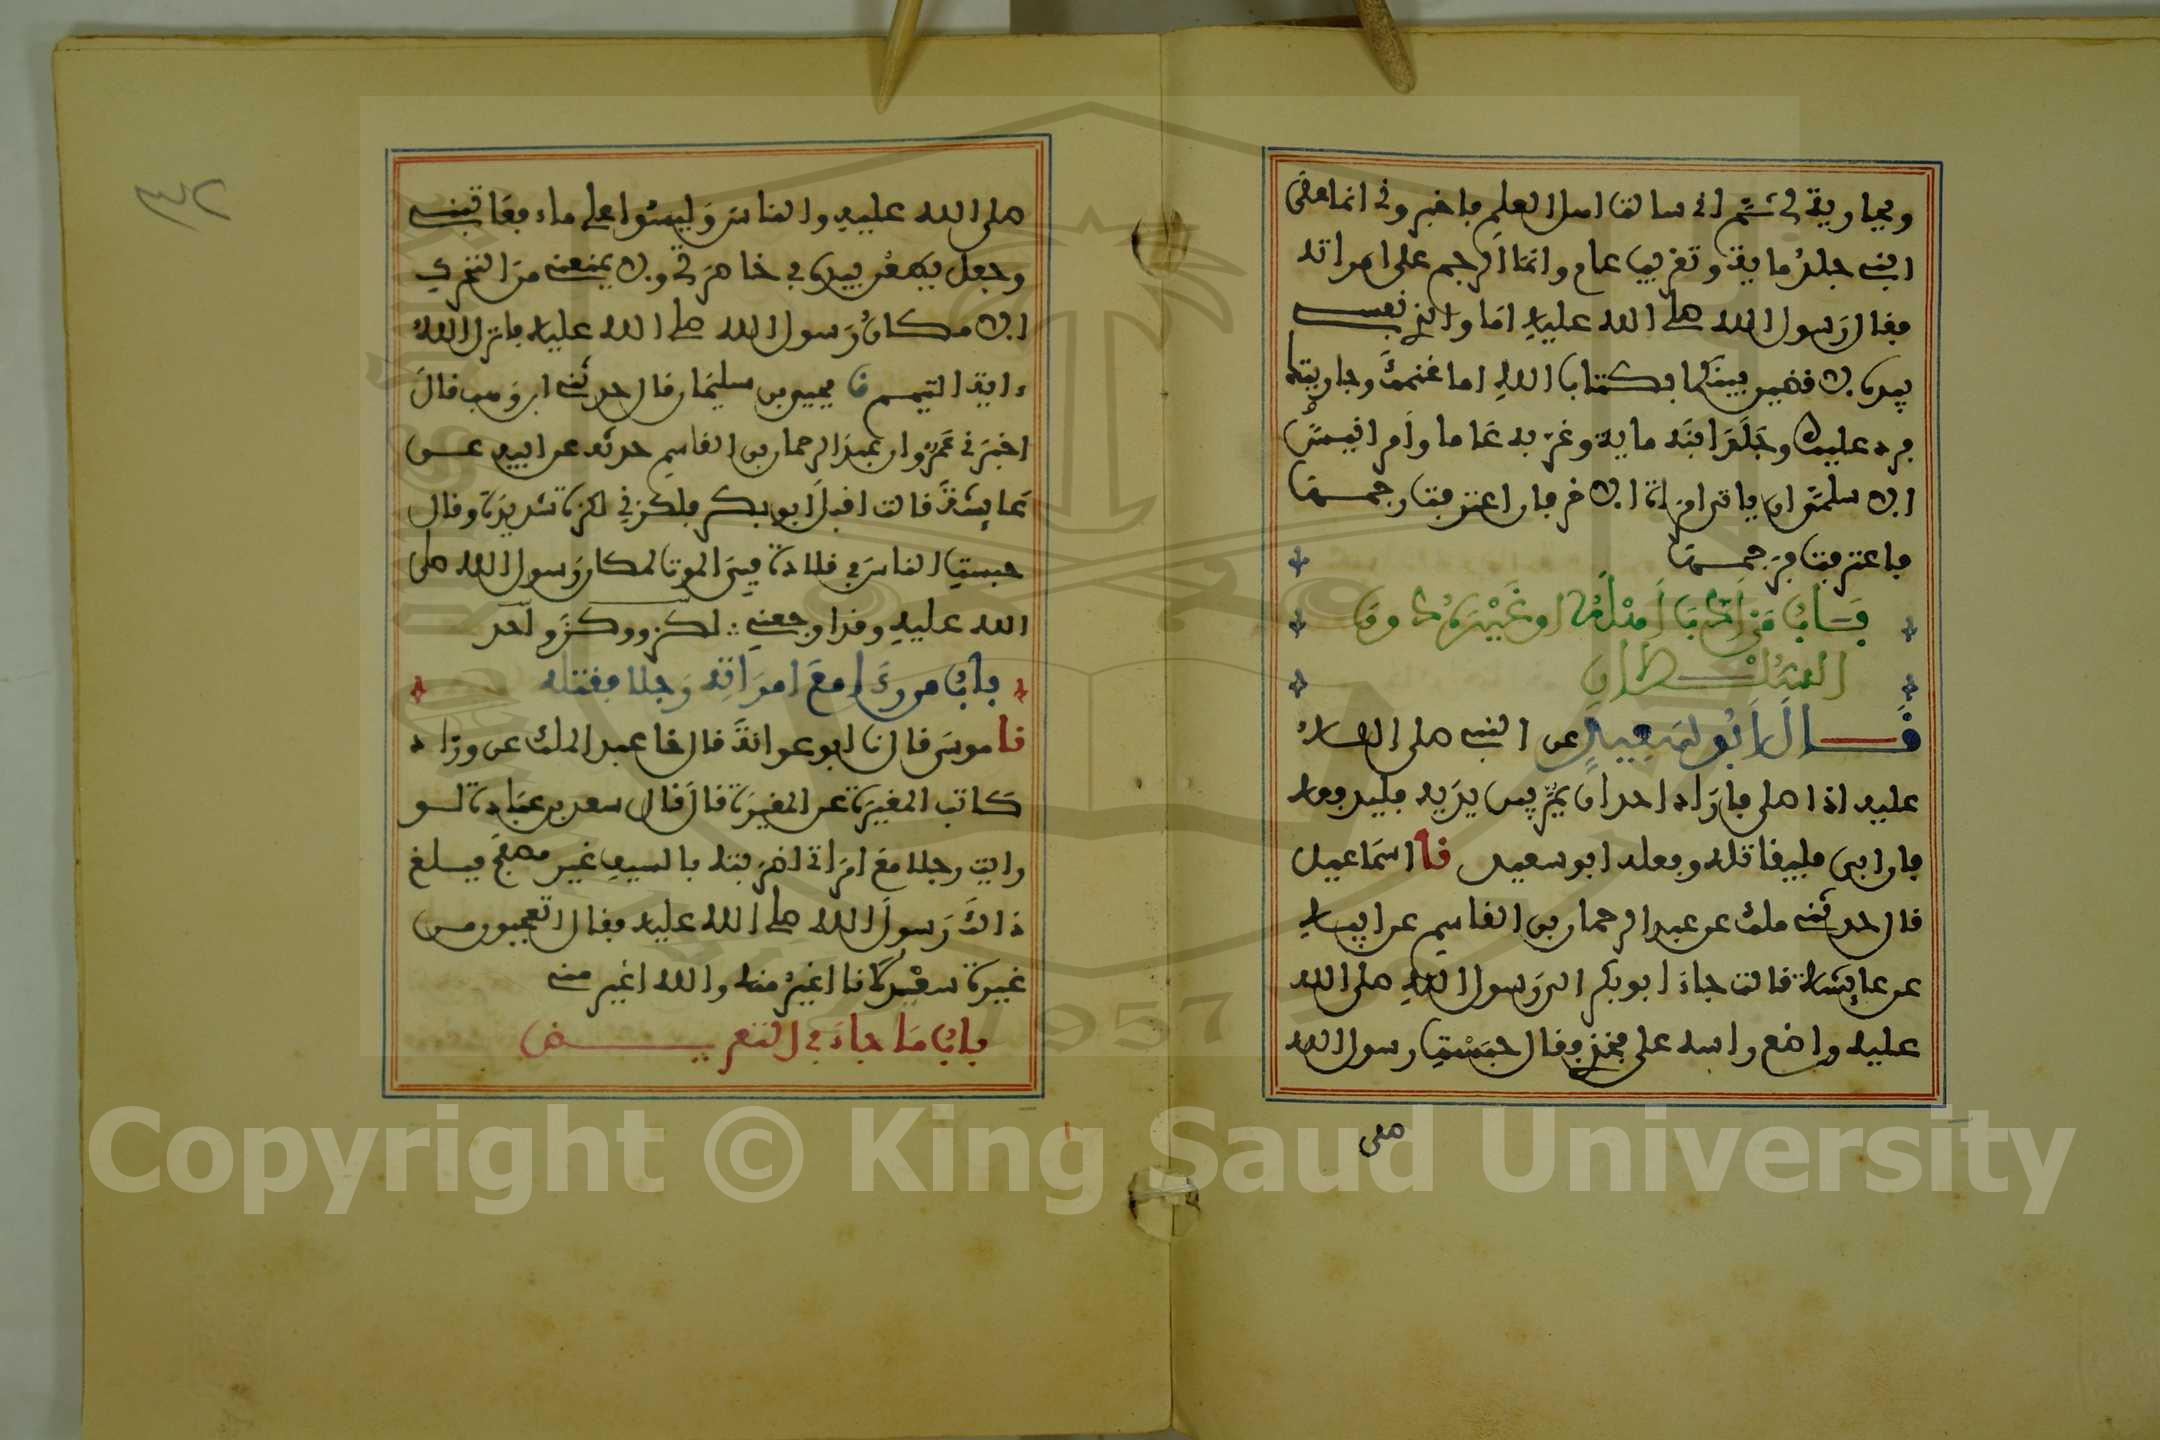 وبجارية لي ثم اني سالت اهل العلم فاخبروني انما على
ابني جلد ماية وتغريب عام وانما الرجم على امراته
فقال رسول الله صلى الله عليه اما والذي نفسي
بيده لاقضين بينكما بكتاب الله اما غنمك وجاريتك
فرد عليك وجلد ابنه ماية وغربه عاما وامر انيس
الاسلمي ان ياتي امراة الاخر فان اعترفت رجمها
فاعترفت فرجمها
باب من ادب اهله او غيره دون
السلطان
قال ابو سعيد عن النبي صلى الله
عليه اذا صلى فاراد احد ان يمر بين يديه فليدفعه
فان ابى فليقاتله وفعله ابو سعيد نا اسماعيل
قال حدثني ملك عن عبد الرحمان بن القاسم عن ابيه
عن عايشة قالت جاء ابو بكر ورسول الله صلى الله
عليه واضع راسه على فخذي فقال حبست رسول الله
صلى
صلى الله عليه والناس وليسوا على ماء فعاتبني
وجعل يطعن بيده في خاصرتي ولا يمنعني من التحرك
الا مكان رسول الله صلى الله عليه فانزل الله
ءاية التيمم نا يحيى بن سليمان قال حدثني ابن وهب قال
اخبرني عمرو ان عبد الرحمان بن القاسم حدثه عن ابيه عن
عايشة قالت اقبل ابو بكر فلكزني لكزة شديدة وقال
حبست الناس في قلادة فبي الموت لمكان رسول الله صلى
الله عليه وقد اوجعني لكز ووكز واحد
باب من رءا مع امراته رجلا فقتله
نا موسى قال نا ابو عوانة قال نا عبد الملك عن وراد
كاتب المغيرة عن المغيرة قال قال سعد بن عبادة لو
رايت رجلا مع امراتي لضربته بالسيف غير مصفح فبلغ
ذالك رسول الله صلى الله عليه فقال اتعجبون من
غيرة سعد لانا اغير منه والله اغير مني
باب ما جاء في التعريض